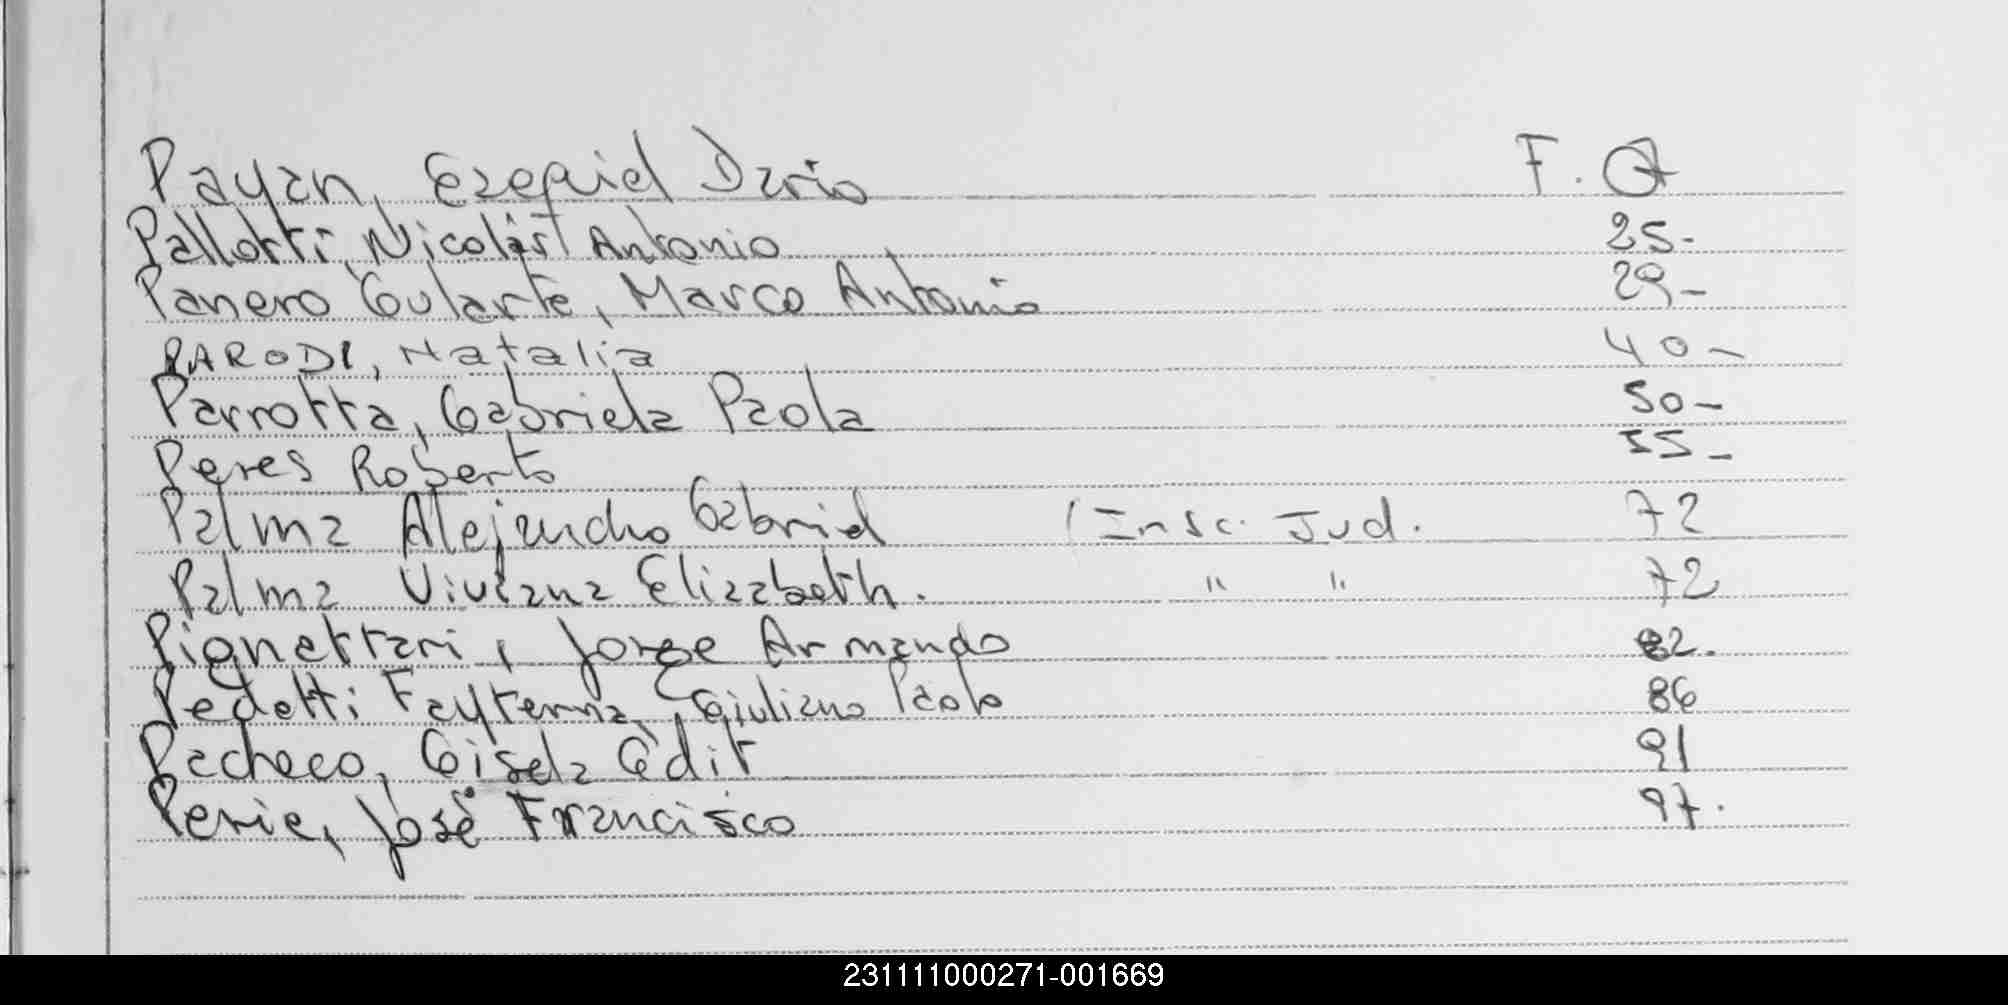 Payan, Ezequiel Dario F. 7
Pallotti, Nicolást Antonio 25-
Panero Gularte, Marco Antonio 29-
PARODI, Natalia 40-
Parrotta, Gabriela Paola 50-
Peres Roberto 55-
Palma Alejandro Gabriel (Insc. Jud. 72
Palma Viviana Elizabeth. " " 72
Pignettari, Jorge Armando 82.
Pedetti Faytenna, Giuliano Paolo 86
Pacheco, Gisela Edit 91
Perie, José Francisco 97.
231111000271-001669